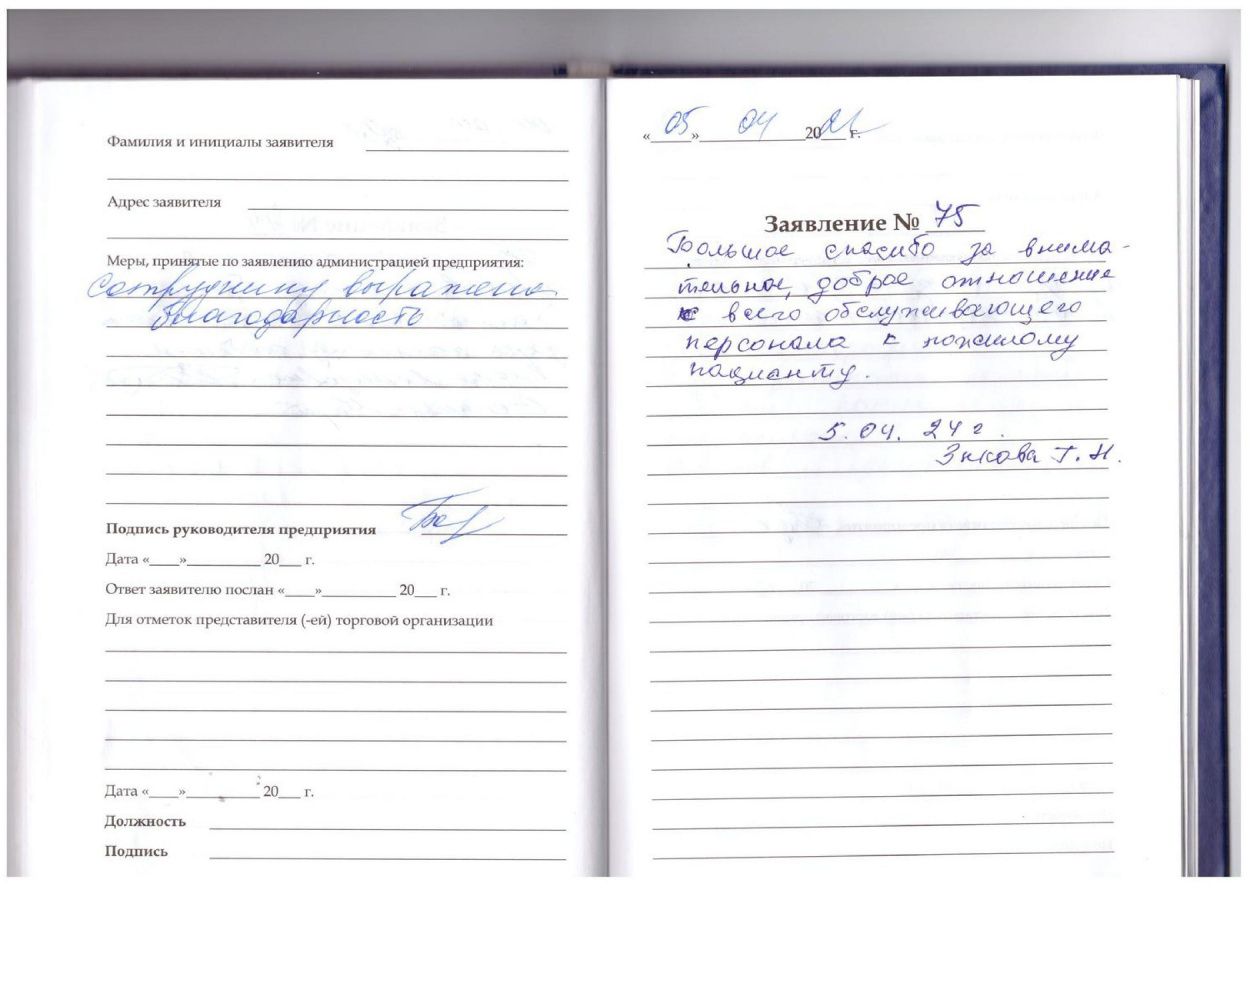 Фамилия и инициалы заявителя
Адрес заявителя
Меры, принятые по заявлению администрацией предприятия:
сотруднику выражена
благодарность
Подпись руководителя предприятия
Дата «____»__________ 20___ г.
Ответ заявителю послан «____»__________ 20___ г.
Для отметок представителя (-ей) торговой организации
Дата «____»__________ 20___ г.
Должность
Подпись
«05» 04 20 г.
Заявление № 75
Большое спасибо за внима-
тельное, доброе отношение
всего обслуживающего
персонала к пожилому
пациенту.
5.04. 24 г.
Т.Н.